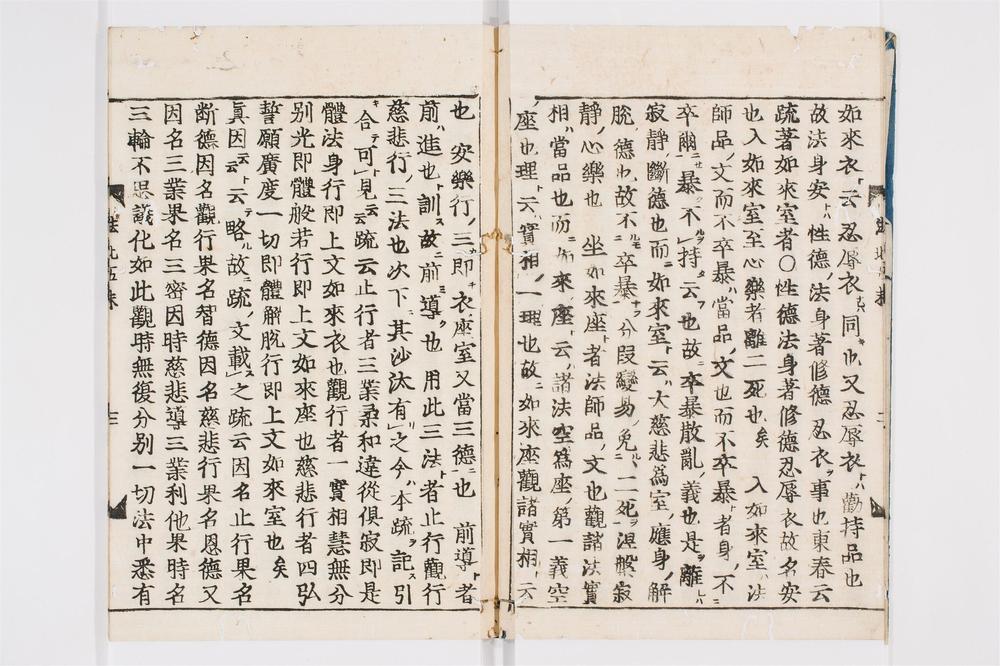 如來衣ト云忍辱衣同也又忍辱衣トハ勸持品也
故法身安トハ性德ノ法身著修德ノ忍衣ヲ事也東春云
疏著如來室者〇性德法身著修德忍辱衣故名安
也入如來室至心樂者離二死也矣 入如來室ハ法
師品ノ文而不卒暴ハ當品ノ文也而不卒暴ト者身ノ不
卒 暴不持云也故卒暴散亂ノ義也是離
寂靜ノ斷德也而如來室ト云ハ大慈悲爲室應身ノ解
脫ノ德也故不卒暴分段變易ノ免二死涅槃寂
靜ノ心樂也 坐如來座ト者法師品ノ文也觀諸法實
相ハ當品也而如來座ト云ハ諸法空爲座第一義空
座也理ト云ハ實相ノ一理也故ニ如來座觀諸實相ト云
也 安樂行ノ三即衣座室又當三德ニ也 前導ト者
前ハ進也ト訓ス故ニ前導ヲ也 用此三法ト者止行觀行
慈悲行ノ三法也次下ニ其沙汰有之今ハ本疏ヲ記ス引
合テ可見云云疏云止行者三業柔和違從俱寂即是
體法身行即上文如來衣也觀行者一實相慧無分
別光即體般若行即上文如來座也慈悲行者四弘
誓願廣度一切即體解脫行即上文如來室也矣
眞因云云ト云テ略ル故ニ疏ノ文載ス之疏云因名止行果名
斷德因名觀行果名智德因名慈悲行果名恩德又
因名三業果名三密因時慈悲導三業利他果時名
三輪不思議化如此觀時無復分別一切法中悉有